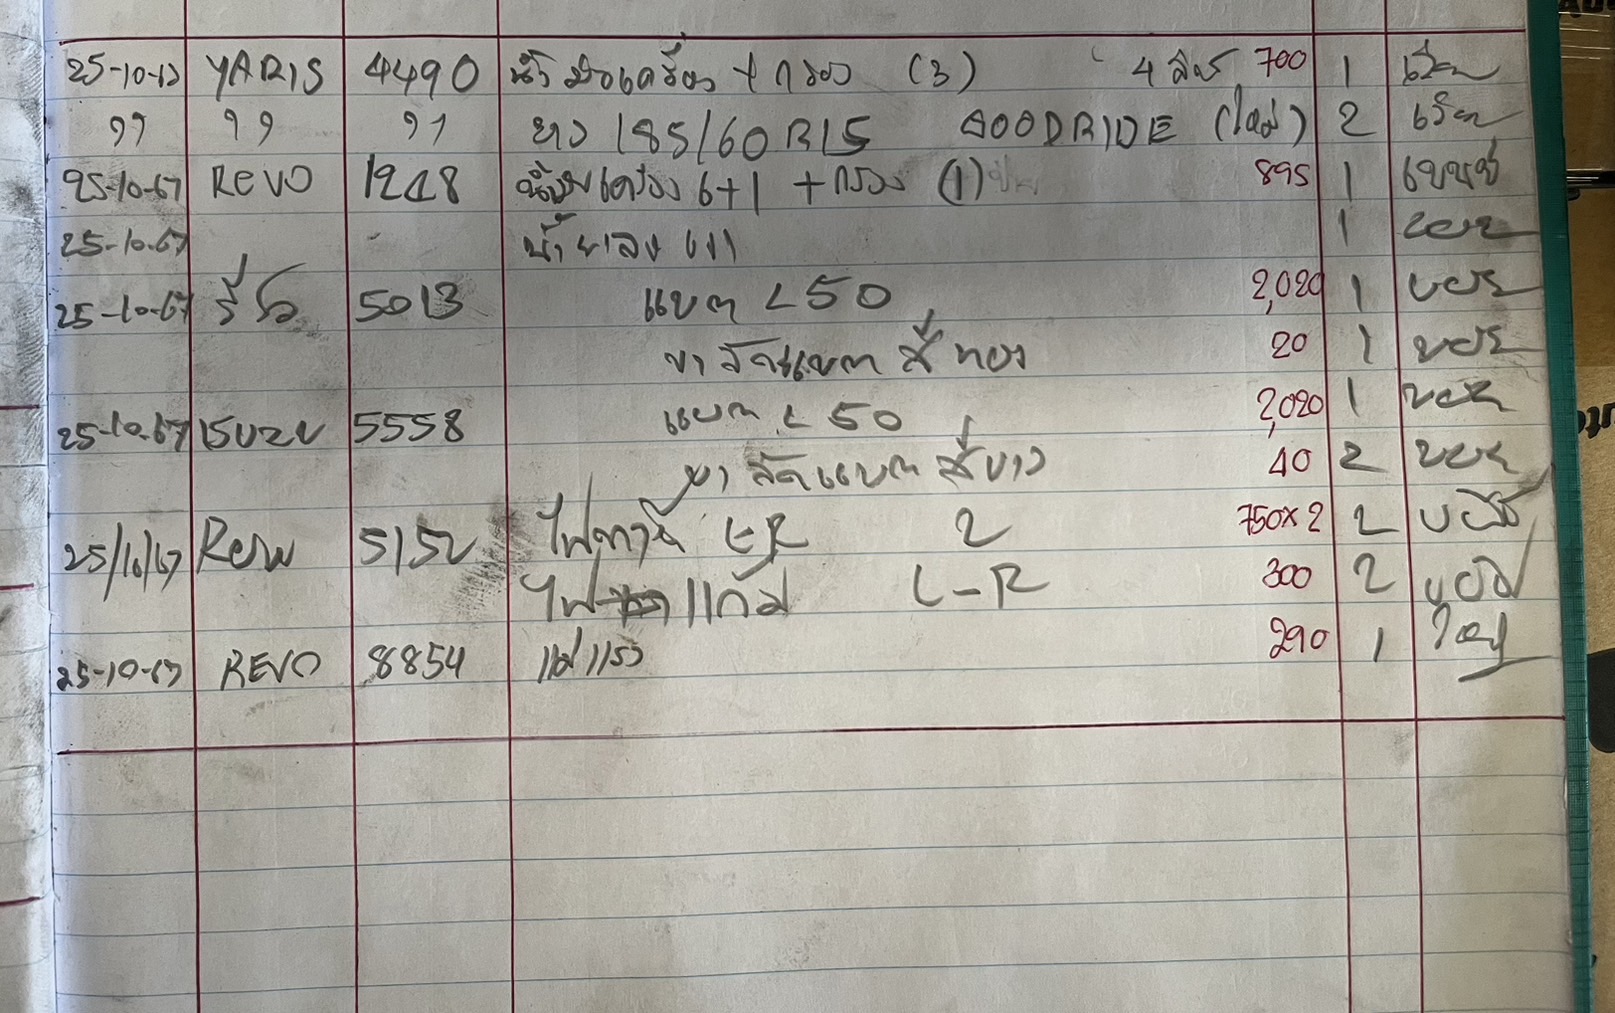 25-10-67 YARIS 4490 น้ำมันเครื่อง + กรอง (3) 4 ลิตร 700 1
" " " ยาง 185/60 R15 GOODRIDE (ใหม่) 2
25-10-67 REVO 1248 น้ำมันเครื่อง 6+1 + กรอง (1) 895 1
25-10-67 น้ำยาล้าง 1
25-10-67 รีโว่ 5013 แบต L50 2,020 1
ขารัดแบต สั้น ทอง 20 1
25-10-67 ISUZU 5558 แบต L50 2,020 1
ขารัดแบต สั้น ขาว 40 2
25/10/67 Revo 5152 ไฟท้าย L-R 2 750x2 2
ไฟ แก้ม L-R 300 2
25-10-67 REVO 8854 แม่แรง 290 1